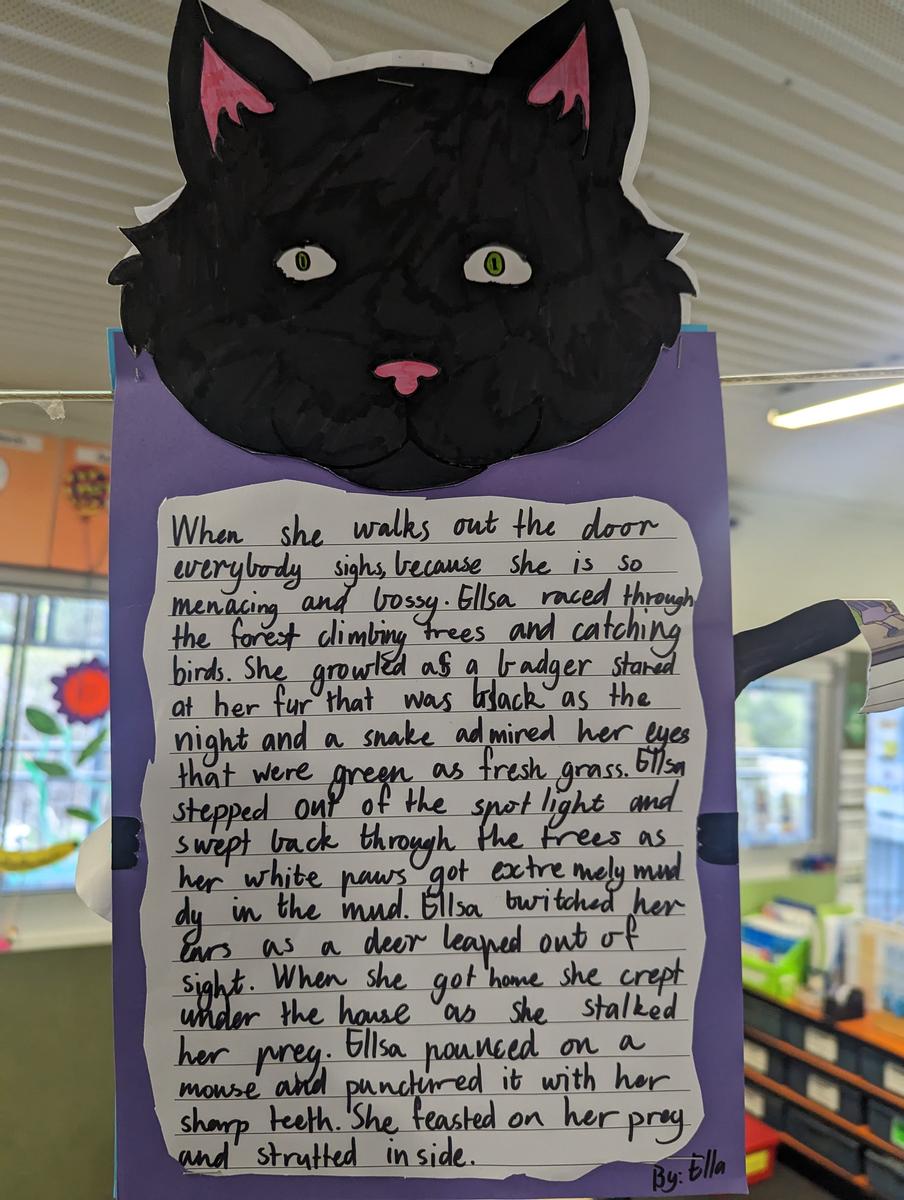 When she walks out the door
everybody sighs, because she is so
menacing and bossy. Ellsa raced through
the forest climbing trees and catching
birds. She growled as a badger stared
at her fur that was black as the
night and a snake admired her eyes
that were green as fresh grass. Ellsa
stepped out of the spot light and
swept back through the trees as
her white paws got extremely mud
dy in the mud. Ellsa twitched her
ears as a deer leaped out of
sight. When she got home she crept
under the house as she stalked
her prey. Ellsa pounced on a
mouse and punctured it with her
sharp teeth. She feasted on her prey
and strutted inside.
By: Ella